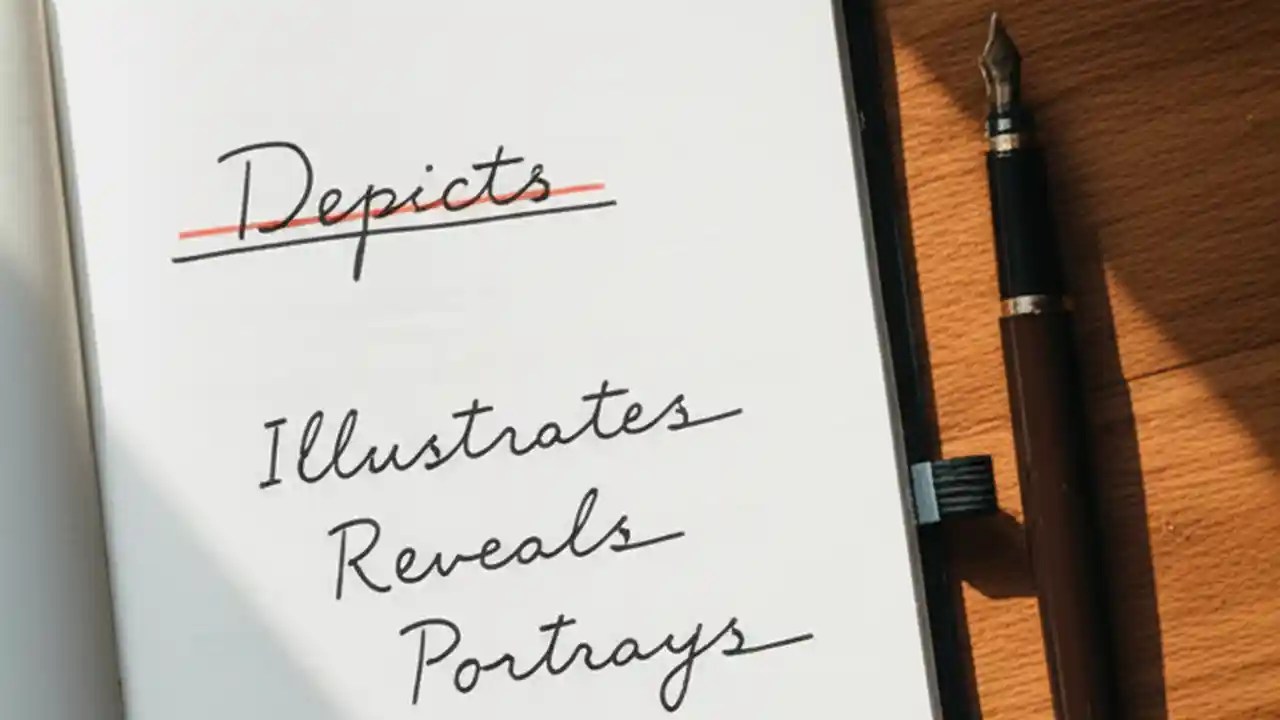 Depicts
Illustrates
Reveals
Portrays